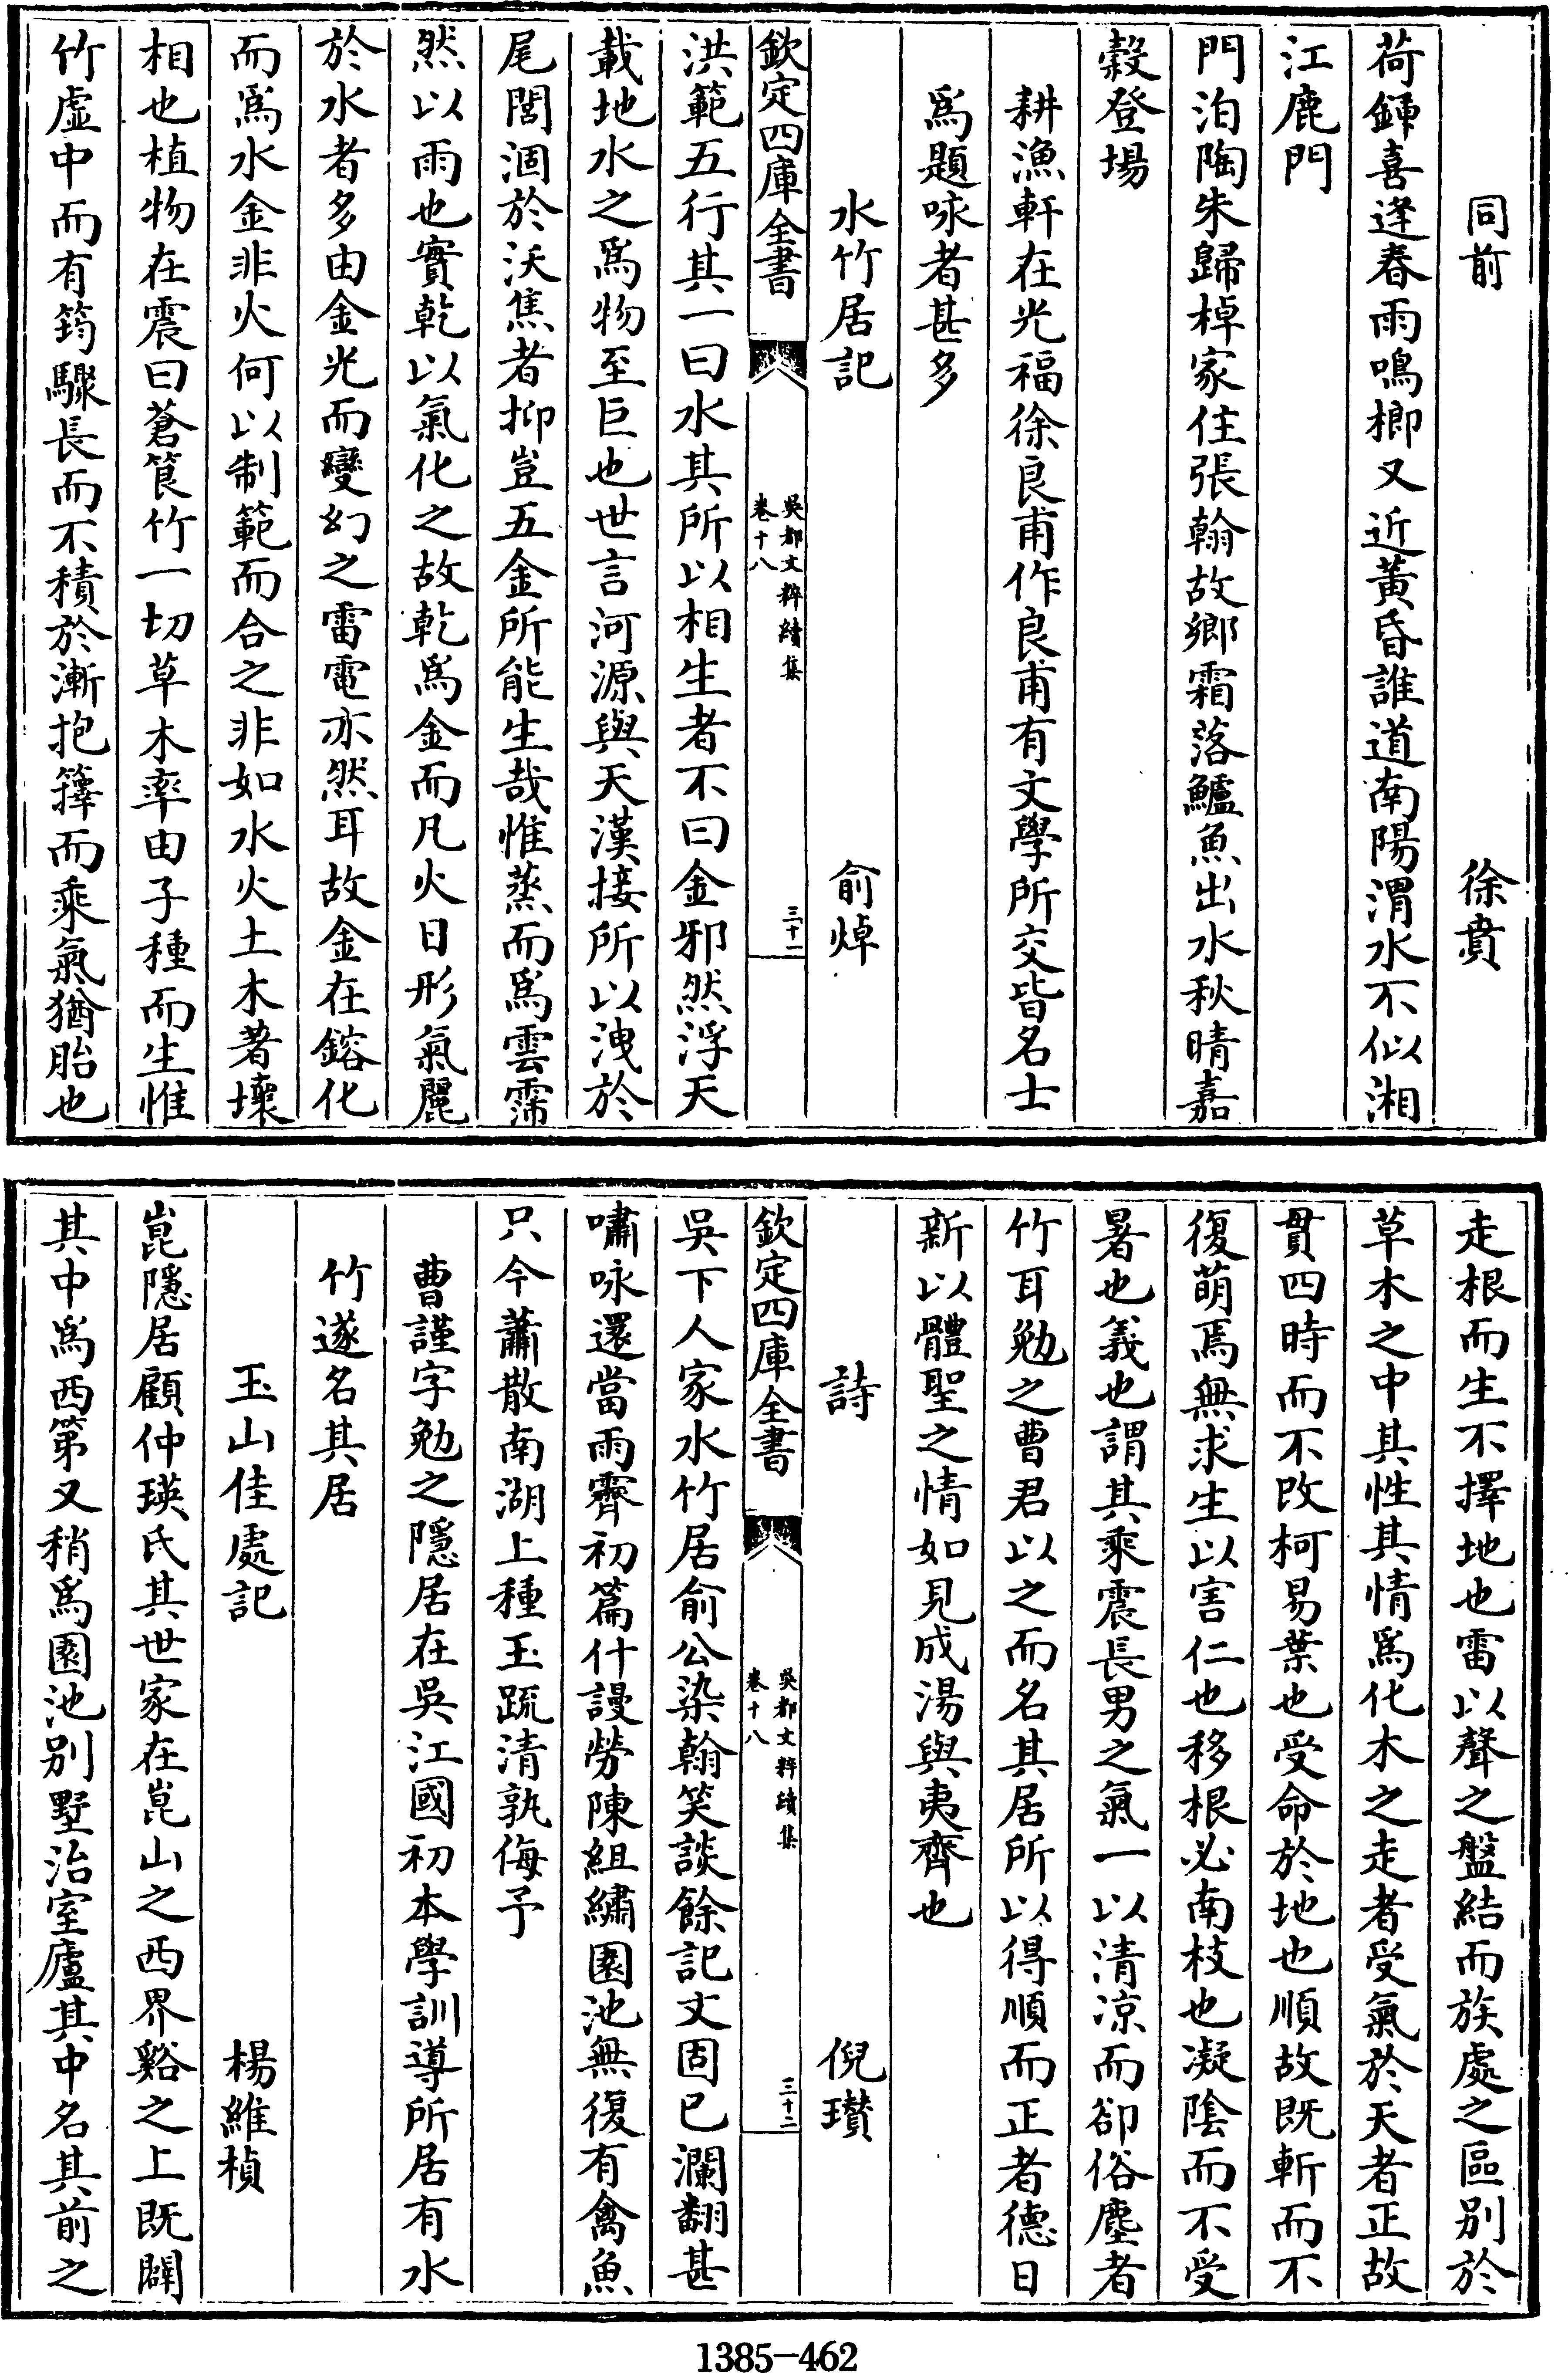 同前　徐賁
荷鍤喜逢春雨鳴榔又近黃昏誰道南陽渭水不似湘
江鹿門
門泊陶朱歸棹家住張翰故鄉霜落鱸魚出水秋晴嘉
穀登場
耕漁軒在光福徐良甫作良甫有文學所交皆名士
為題咏者甚多
水竹居記　俞焯
欽定四庫全書　吳都文粹續集　卷十八　三十一
洪範五行其一曰水其所以相生者不曰金邪然浮天
載地水之為物至巨也世言河源與天漢接所以洩於
尾閭涸於沃焦者抑豈五金所能生哉惟蒸而為雲霈
然以雨也實乾以氣化之故乾為金而凡火日形氣麗
於水者多由金光而變幻之雷電亦然耳故金在鎔化
而為水金非火何以制範而合之非如水火土木著壞
相也植物在震曰蒼筤竹一切草木率由子種而生惟
竹虛中而有筠驟長而不積於漸抱籜而乘氣猶胎也
走根而生不擇地也雷以聲之盤結而族處之區别於
草木之中其性其情為化木之走者受氣於天者正故
貫四時而不改柯易葉也受命於地也順故既斬而不
復萌焉無求生以害仁也移根必南枝也凝陰而不受
暑也義也謂其乘震長男之氣一以清凉而卻俗塵者
竹耳勉之曹君以之而名其居所以得順而正者德日
新以體聖之情如見成湯與夷齊也
詩　倪瓚
欽定四庫全書　吳都文粹續集　卷十八　三十二
吳下人家水竹居俞公染翰笑談餘記文固已瀾翻甚
嘯咏還當雨霽初篇什謾勞陳組繡園池無復有禽魚
只今蕭散南湖上種玉疏清孰侮予
曹謹字勉之隱居在吳江國初本學訓導所居有水
竹遂名其居
玉山佳處記　楊維楨
崑隱居顧仲瑛氏其世家在崑山之西界谿之上既闢
其中為西第又稍為園池别墅治室廬其中名其前之
1385-462